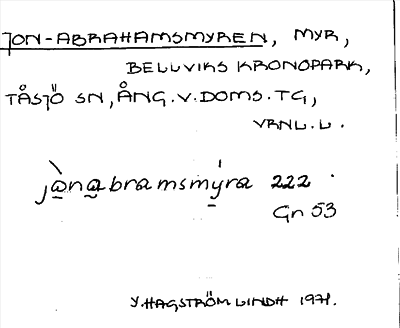 JON-ABRAHAMSMYREN, MYR,
BELLVIKS KRONOPARK,
TÅSJÖ SN, ÅNG.V.DOMS.TG,
VRNL.L.
jànabramsmýra 222
Gn 53
Y. HAGSTRÖM LINDH 1971.